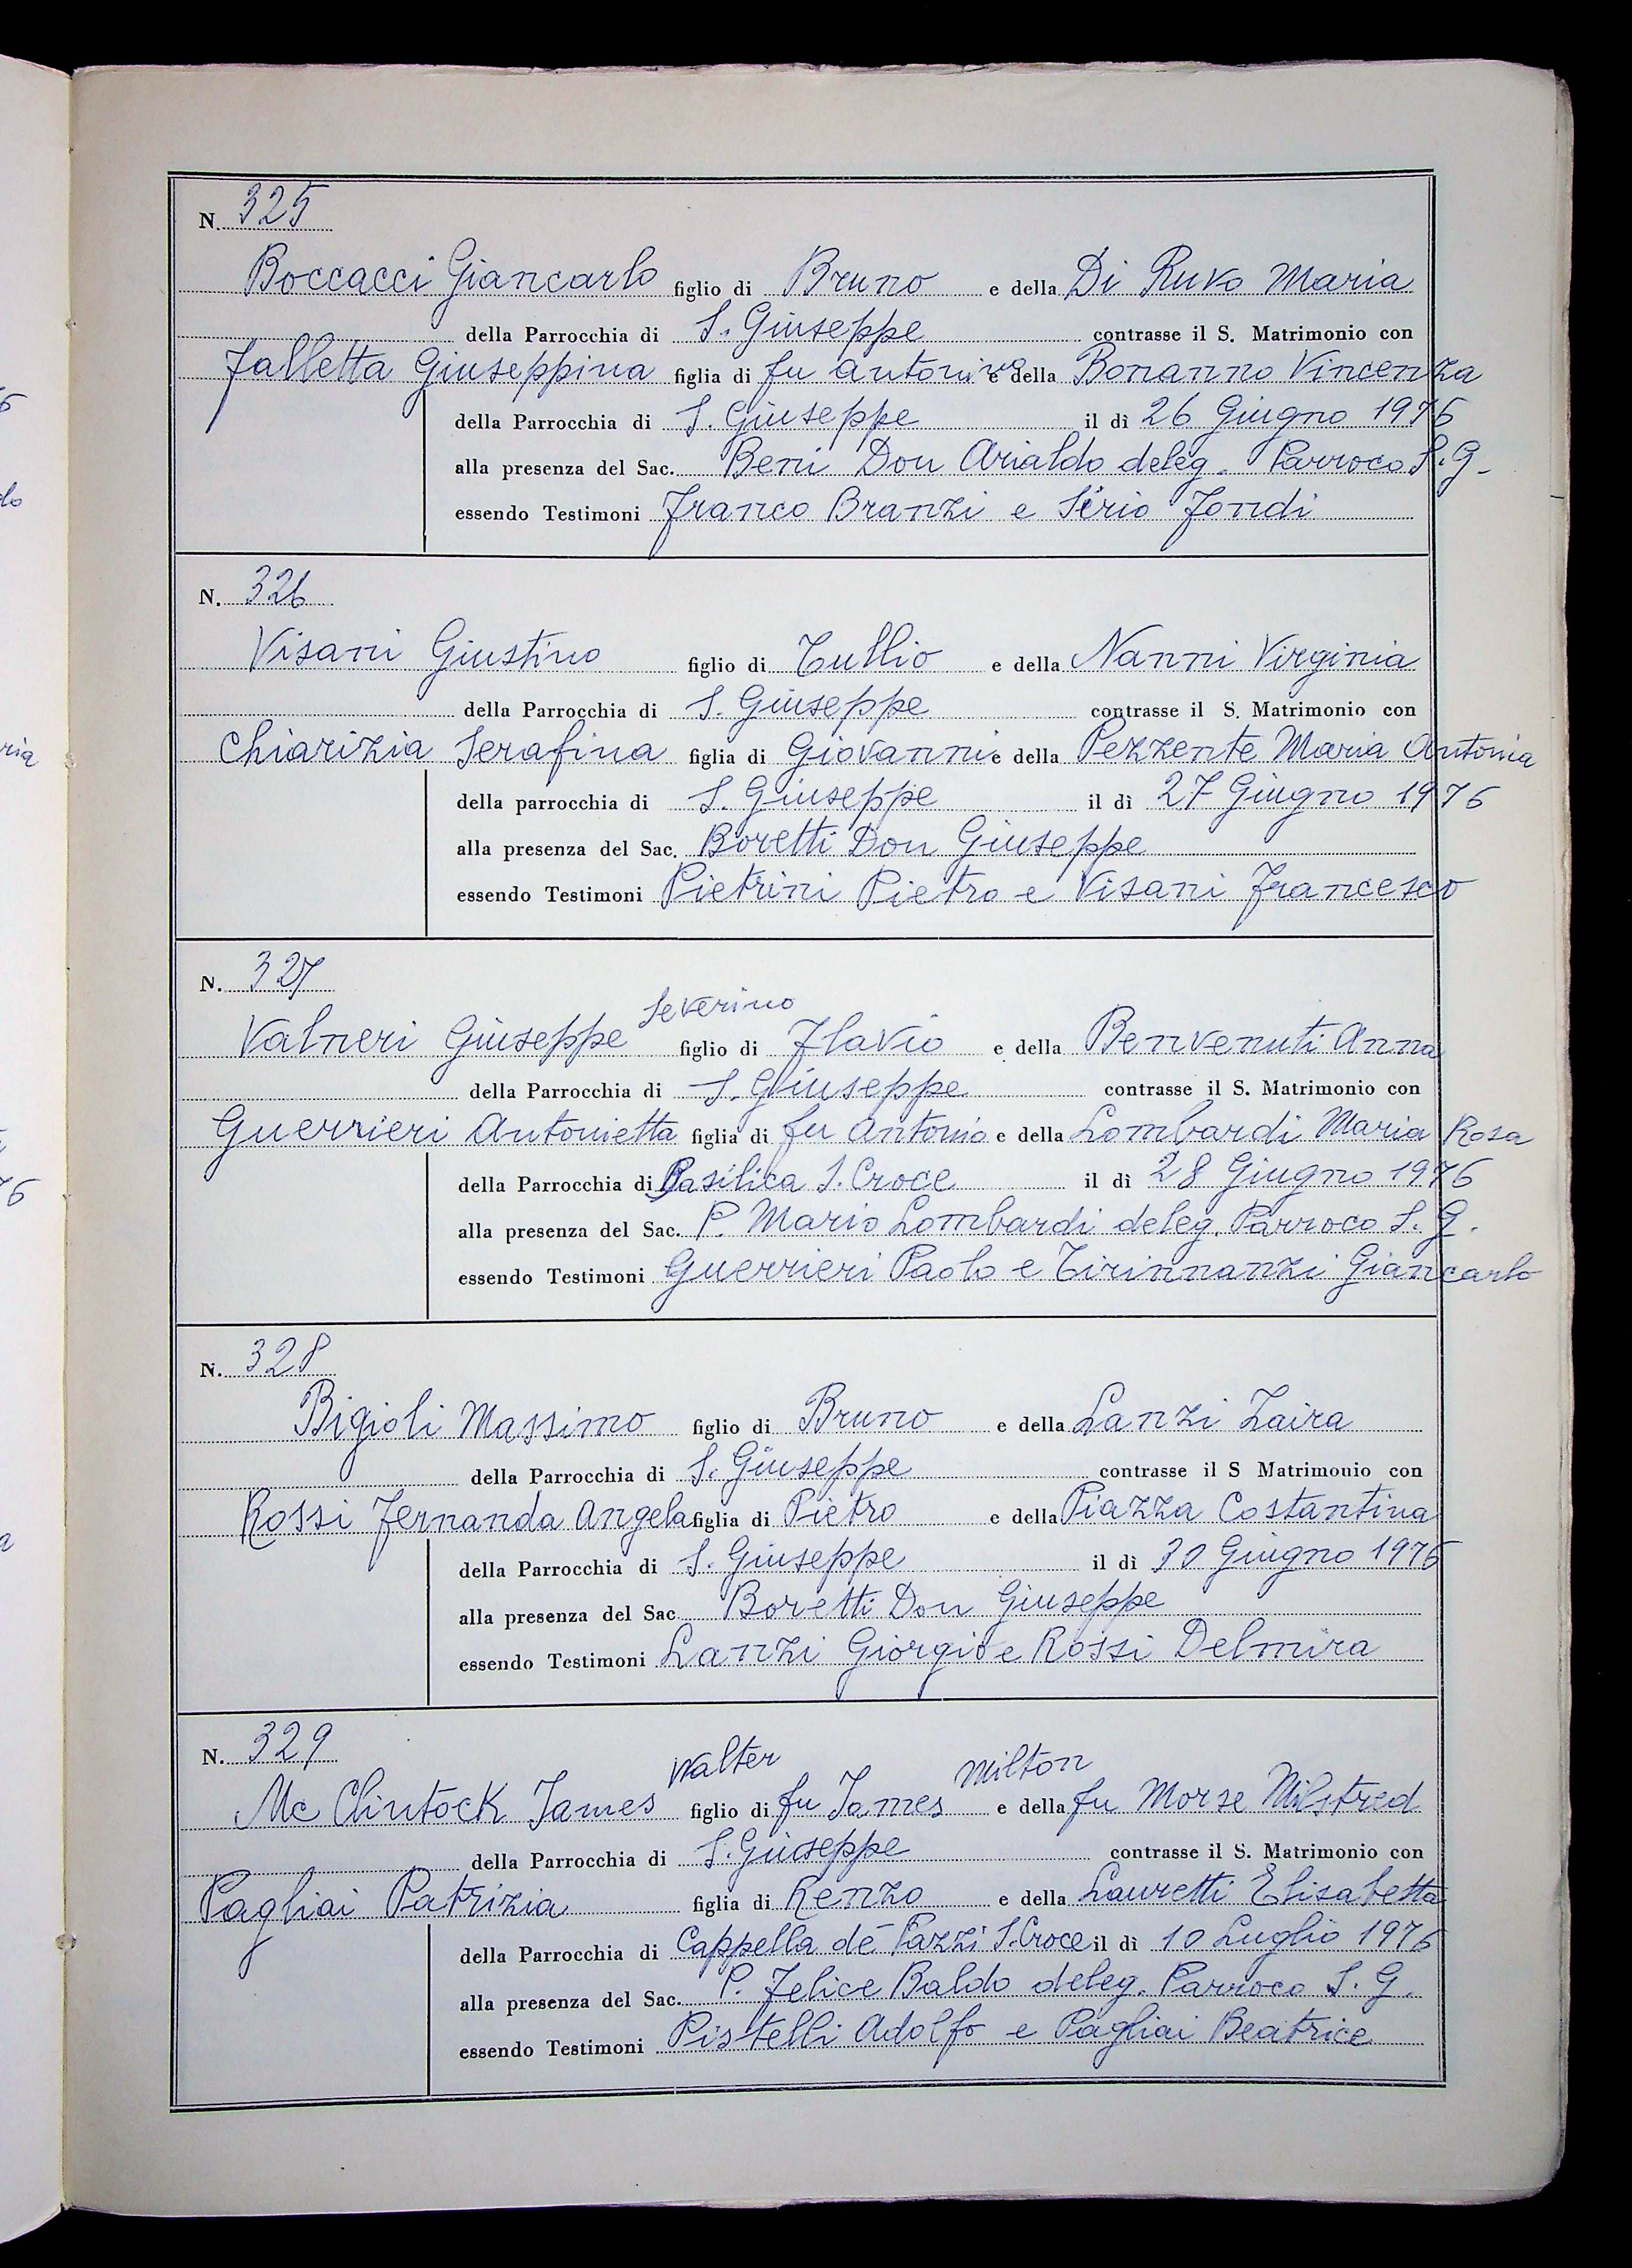 N. 325
Boccacci Giancarlo figlio di Bruno e della Di Ruvo Maria
della Parrocchia di S. Giuseppe contrasse il S. Matrimonio con
Falletta Giuseppina figlia di fu Antonino e della Bonanno Vincenza
della Parrocchia di S. Giuseppe il dì 26 Giugno 1976
alla presenza del Sac. Beni Don Arialdo deleg. Parroco S.G.
essendo Testimoni Franco Branzi e Sirio Fondi
N. 326
Visani Giustino figlio di Tullio e della Nanni Virginia
della Parrocchia di S. Giuseppe contrasse il S. Matrimonio con
Chiarizia Serafina figlia di Giovanni e della Pezzente Maria Antonia
della parrocchia di S. Giuseppe il dì 27 Giugno 1976
alla presenza del Sac. Boretti Don Giuseppe
essendo Testimoni Pietrini Pietro e Visani Francesco
N. 327
Severino
Valneri Giuseppe figlio di Flavio e della Benvenuti Anna
della Parrocchia di S. Giuseppe contrasse il S. Matrimonio con
Guerrieri Antonietta figlia di fu Antonio e della Lombardi Maria Rosa
della Parrocchia di Basilica S. Croce il dì 28 Giugno 1976
alla presenza del Sac. P. Mario Lombardi deleg. Parroco S. G.
essendo Testimoni Guerrieri Paolo e Tirinnanzi Giancarlo
N. 328
Bigioli Massimo figlio di Bruno e della Lanzi Zaira
della Parrocchia di S. Giuseppe contrasse il S Matrimonio con
Rossi Fernanda Angela figlia di Pietro e della Piazza Costantina
della Parrocchia di S. Giuseppe il dì 30 Giugno 1976
alla presenza del Sac Boretti Don Giuseppe
essendo Testimoni Lanzi Giorgio e Rossi Delmira
N. 329
Walter Milton
Mc Clintock James figlio di fu James e della fu Morse
della Parrocchia di S. Giuseppe contrasse il S. Matrimonio con
Pagliai Patrizia figlia di Renzo e della Lauretti Elisabetta
della Parrocchia di Cappella de' Pazzi S. Croce il dì 10 Luglio 1976
alla presenza del Sac. P. Felice Baldo deleg. Parroco S. G.
essendo Testimoni Pistelli Adolfo e Pagliai Beatrice